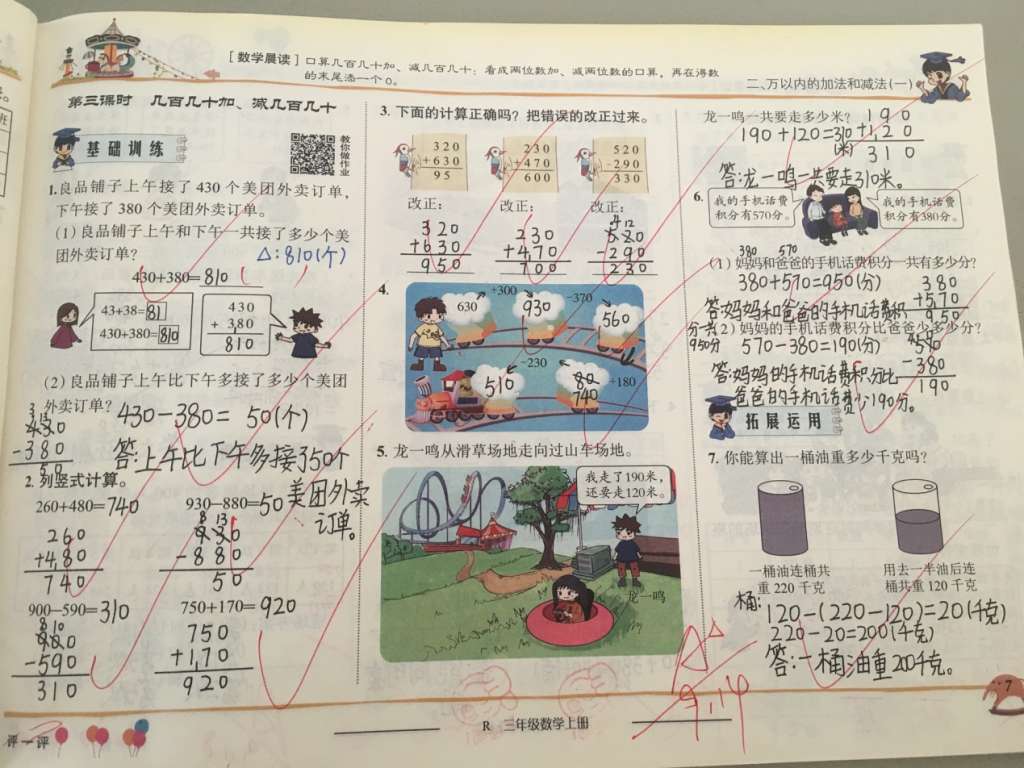 [数学晨读]口算几百几十加、减几百几十：看成两位数加、减两位数的口算，再在得数
的末尾添一个0。
二、万以内的加法和减法(一)
第三课时 几百几十加、减几百几十
基础训练
教你做作业
1.良品铺子上午接了430个美团外卖订单，
下午接了380个美团外卖订单。
(1)良品铺子上午和下午一共接了多少个美
团外卖订单?
△:810(个)
430+380=810
43+38=81
430+380=810
430
+380
810
(2)良品铺子上午比下午多接了多少个美团
外卖订单?
430-380=50(个)
430
-380
50
答:上午比下午多接350个
美团外卖
订单。
2.列竖式计算。
260+480=740
930-880=50
260
+480
740
8 13
930
-880
50
900-590=310
750+170=920
8 10
900
-590
310
750
+170
920
3.下面的计算正确吗?把错误的改正过来。
320
+630
95
230
+470
600
520
-290
330
改正:
改正:
改正:
320
+630
950
230
+470
700
4 12
520
-290
230
4.
630
+300
930
-370
560
-230
510
+180
740
5.龙一鸣从滑草场地走向过山车场地。
我走了190米，
还要走120米。
龙一鸣
龙一鸣一共要走多少米?
190+120=310(米)
190
+120
310
答:龙一鸣一共要走310米。
6.
我的手机话费
积分有570分。
我的手机话费
积分有380分。
380 570
(1)妈妈和爸爸的手机话费积分一共有多少分?
380+570=950(分)
380
+570
950
答:妈妈和爸爸的手机话费积
分一共
950分
(2)妈妈的手机话费积分比爸爸少多少分?
570-380=190(分)
570
-380
190
答:妈妈的手机话费积分比
爸爸的手机话费少190分。
拓展运用
7.你能算出一桶油重多少千克吗?
一桶油连桶共
重220千克
用去一半油后连
桶共重120千克
桶:
120-(220-120)=20(千克)
220-20=200(千克)
答:一桶油重200千克。
9.14
7
R 三年级数学上册
评一评